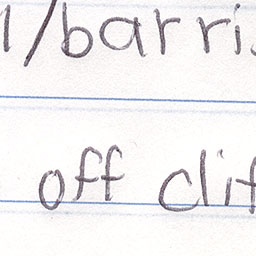 /barri
off clif